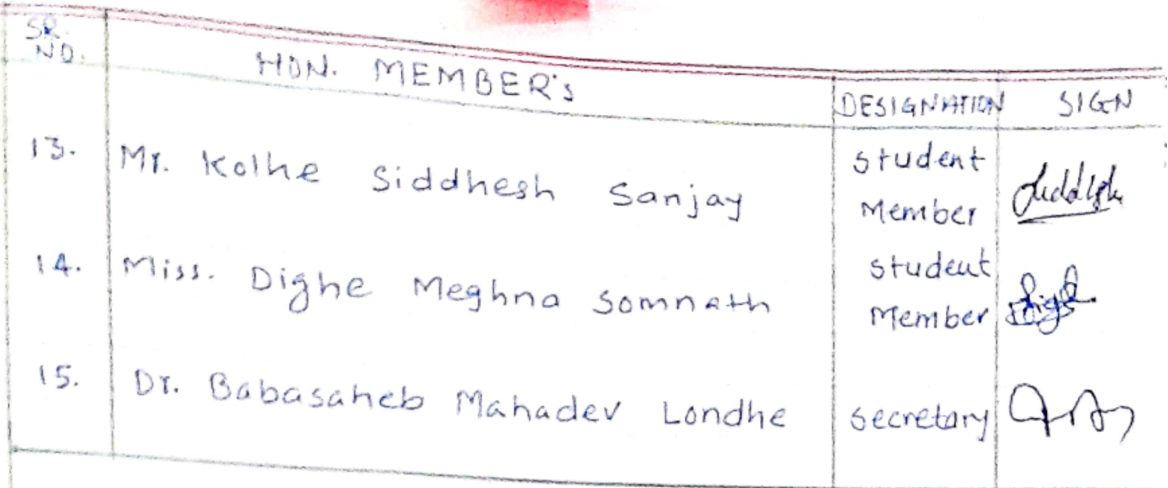 SR. NO. HON. MEMBER's DESIGNATION SIGN
13. Mr. Kolhe Siddhesh Sanjay student Member
14. Miss. Dighe Meghna Somnath student Member
15. Dr. Babasaheb Mahadev Londhe secretary